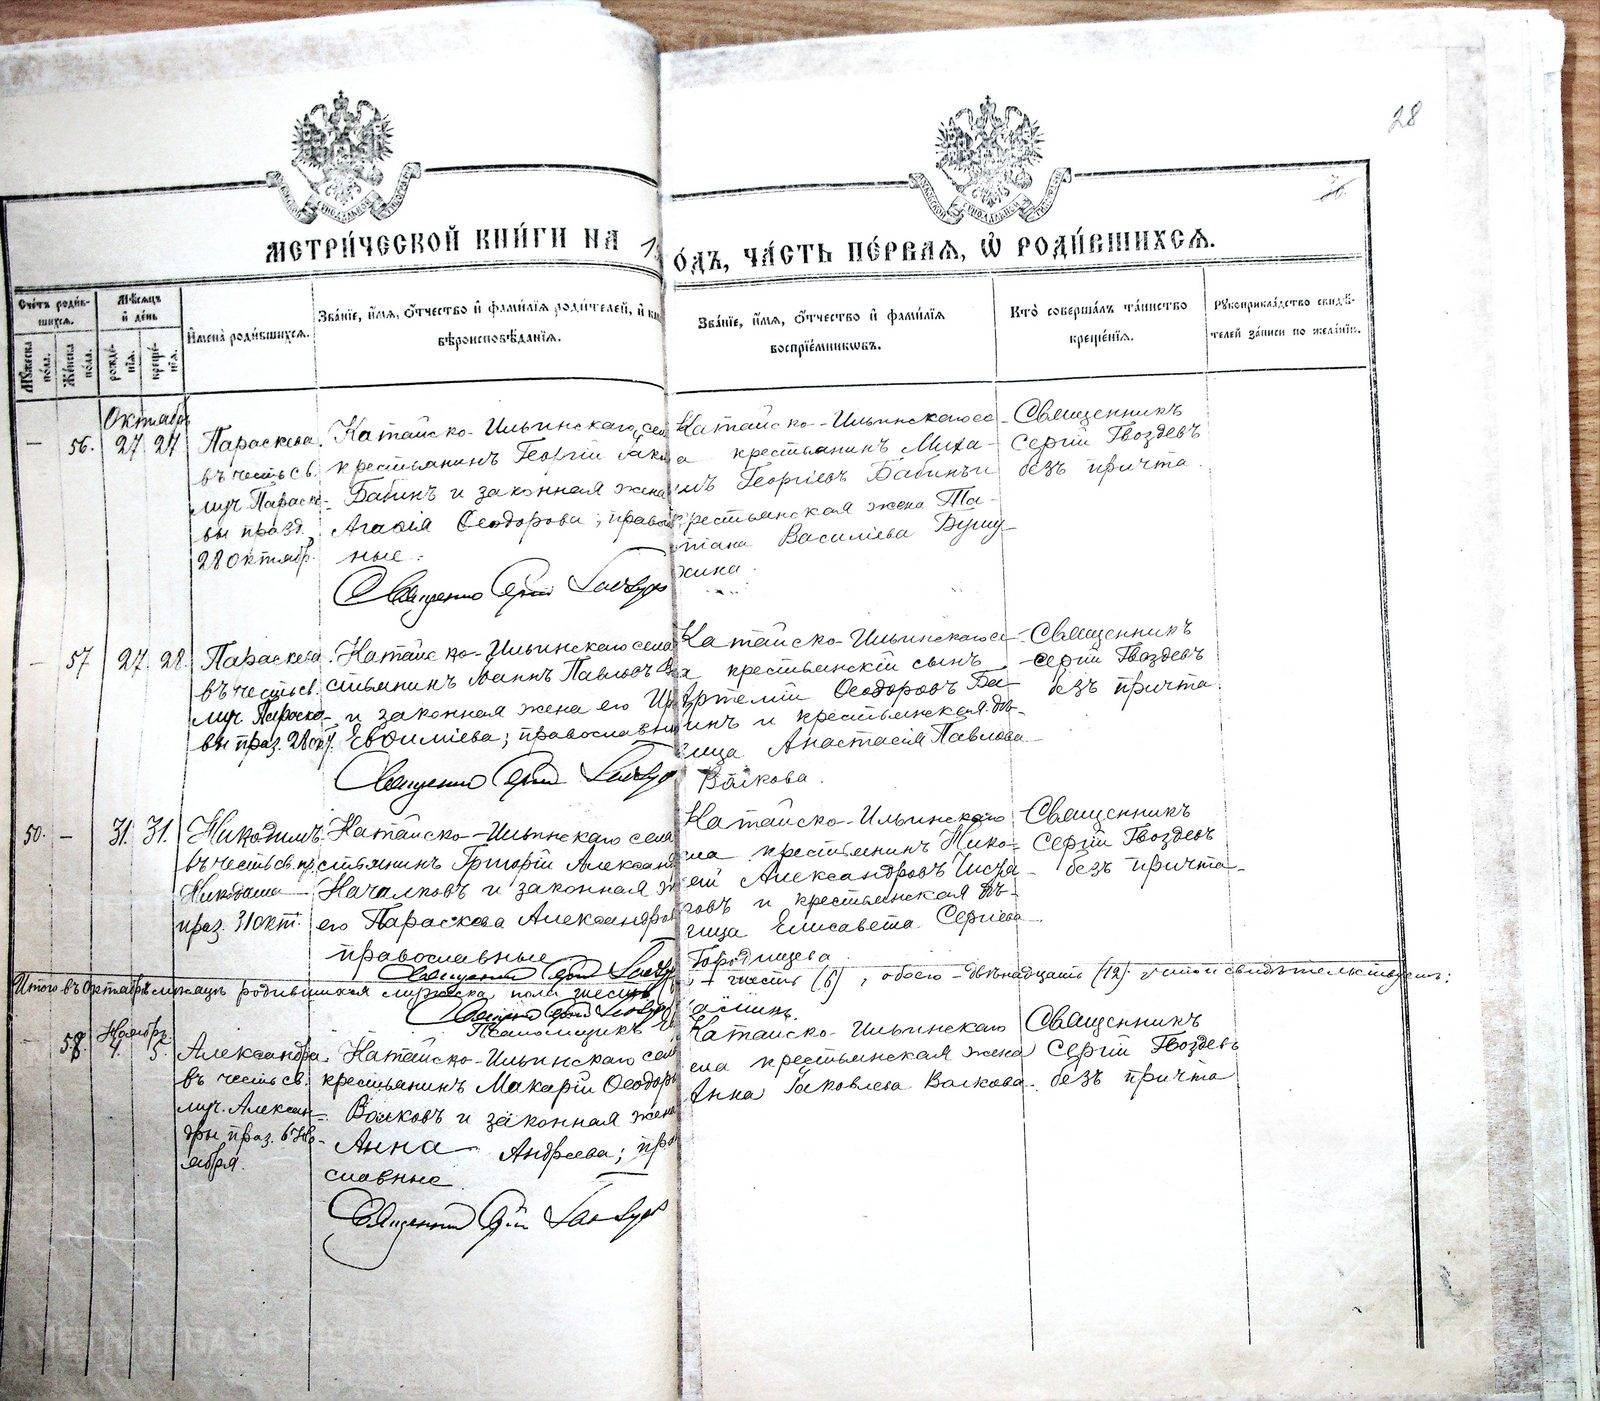 28
МЕТРИ́ЧЕСКОЙ КНИ́ГИ НА 1
ОДЪ, ЧА́СТЬ ПЕ́РВАЯ, Ѡ҆ РОДИ́ВШИХСЯ.
Сче́тъ роди́в-
шихся.
Мꙋ́жеска по́ла.
Же́нска по́ла.
Мѣ́сяцъ и҆ де́нь
рожде́-
нїя.
креще́-
нїя.
И҆мена̀ роди́вшихся.
Зва́нїе, и҆́мя, ѻ҆́тчество и҆ фами́лїя роди́телей, и҆ как
вѣроисповѣ́данїя.
Зва́нїе, и҆́мя, ѻ҆́тчество и҆ фами́лїя
воспрїе́мникѡвъ.
Кто̀ соверша́лъ та́инство
креще́нїя.
Рꙋкоприкла́дство свидѣ́-
телей за́писи по жела́нїю.
Октябрь
— 56. 27 27
Параскева
въ честь св.
муч. Параске-
вы празд.
28 октябр.
Катайско-Ильинскаго сел
крестьянинъ Георгій Іако
Бабинъ и законная жена
Агаѳія Ѳеодорова; право
ные.
Священник Сергій Гвозд
Катайско-Ильинскаго се
а крестьянинъ Миха-
илъ Георгіевъ Бабинъ и
крестьянская жена Та-
тіана Василіева Бушу-
жина.
Священникъ
Сергій Гвоздевъ
безъ причта.
— 57 27. 28.
Параскева
въ честь св.
муч. Параске-
вы праз. 28 окт.
Катайско-Ильинскаго села
стьянинъ Іоаннъ Павловъ
и законная жена его Ир
Евѳиміева; православны
Священник Сергій Гвозд
Катайско-Ильинскаго се
а крестьянскій сынъ
Артемій Ѳеодоровъ Ба-
инъ и крестьянская дѣ-
вица Анастасія Павлова
Волкова.
Священникъ
Сергій Гвоздевъ
безъ причта.
50. — 31. 31.
Никодимъ
въ честь св. пр.
Никодима
праз. 31 окт.
Катайско-Ильинскаго села
стьянинъ Григорій Александ
Качалковъ и законная ж
его Параскева Александров
православные
Священник Сергій Гвозд
Катайско-Ильинскаго
ела крестьянинъ Нико-
лай Александровъ
и крестьянская дѣ-
вица Елисавета Сергіева
Городищева.
Священникъ
Сергій Гвоздевъ
безъ причта.
Итого въ Октябрѣ мѣсяцѣ родившихся мужеска пола шесть
шесть (6), обоего - двѣнадцать (12). въ томъ свидѣтельствуемъ:
Священник Сергій Гвозд
Псаломщикъ
Ноябрь
— 58. 4. 5.
Александра
въ честь св.
муч. Алексан-
дры праз. 6 Но-
ября.
Катайско-Ильинскаго сел
крестьянинъ Макарій Ѳеодоро
Волковъ и законная жена
Анна Андреева; пра
славные.
Священник Сергій Гвозд
Катайско-Ильинскаго
села крестьянская жена
Анна Іаковлева Волкова.
Священникъ
Сергій Гвоздевъ
безъ причта